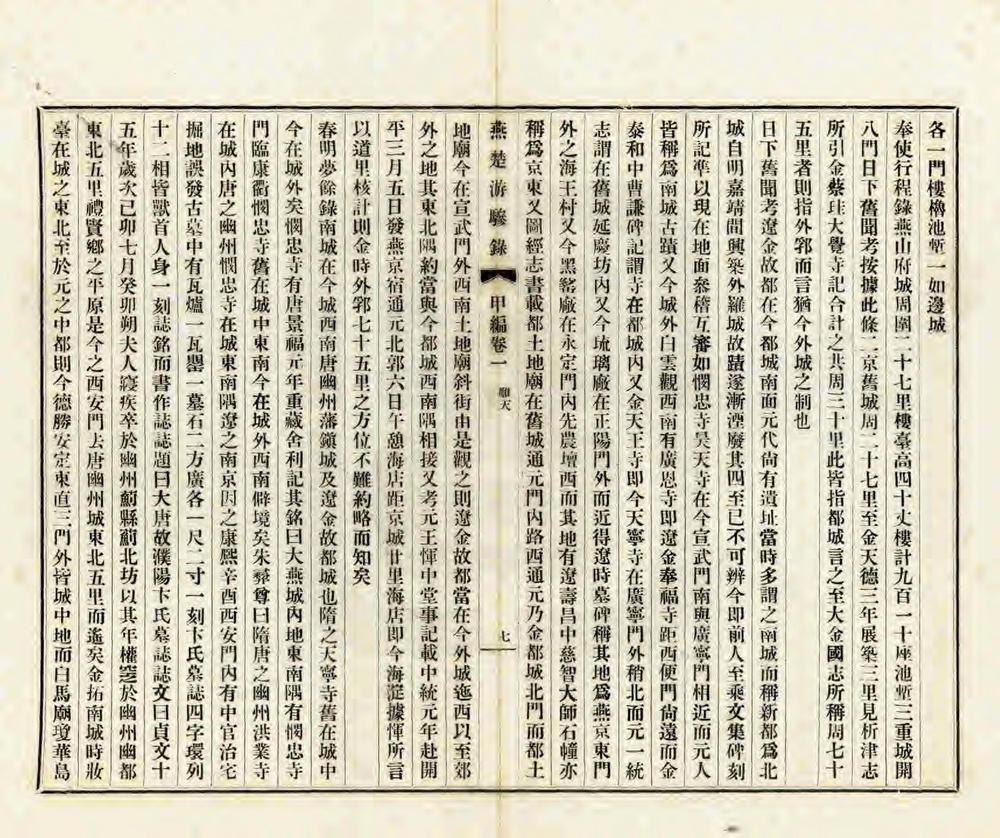 各一門樓櫓池塹一如邊城
奉使行程錄燕山府城周圍二十七里樓臺高四十丈樓計九百一十座池塹三重城開
八門日下舊聞考按據此條二京舊城周二十七里至金天德三年展築三里見析津志
所引金蔡珪大覺寺記合計之共周三十里此皆指都城言之至大金國志所稱周七十
五里者則指外郛而言猶今外城之制也
日下舊聞考遼金故都在今都城南面元代尙有遺址當時多謂之南城而稱新都爲北
城自明嘉靖間興築外羅城故蹟遂漸湮廢其四至已不可辨今卽前人至乘文集碑刻
所記準以現在地面參稽互審如憫忠寺昊天寺在今宣武門南與廣寧門相近而元人
皆稱爲南城古蹟又今城外白雲觀西南有廣恩寺卽遼金奉福寺距西便門尙遠而金
泰和中曹謙碑記謂寺在都城內又金天王寺卽今天寧寺在廣寧門外稍北而元一統
志謂在舊城延慶坊內又今琉璃廠在正陽門外而近得遼時墓碑稱其地爲燕京東門
外之海王村又今黑窰廠在永定門內先農壇西而其地有遼壽昌中慈智大師石幢亦
稱爲京東又圖經志書載都土地廟在舊城通元門內路西通元乃金都城北門而都土
燕楚游驂錄 甲編卷一 順天 七
地廟今在宣武門外西南土地廟斜街由是觀之則遼金故都當在今外城迤西以至郊
外之地其東北隅約當與今都城西南隅相接又考元王惲中堂事記載中統元年赴開
平三月五日發燕京宿通元北郭六日午憩海店距京城廿里海店卽今海淀據惲所言
以道里核計則金時外郛七十五里之方位不難約略而知矣
春明夢餘錄南城在今城西南唐幽州藩鎭城及遼金故都城也隋之天寧寺舊在城中
今在城外矣憫忠寺有唐景福元年重藏舍利記其銘曰大燕城內地東南隅有憫忠寺
門臨康衢憫忠寺舊在城中東南今在城外西南僻境矣朱彝尊曰隋唐之幽州洪業寺
在城內唐之幽州憫忠寺在城東南隅遼之南京因之康熙辛酉西安門內有中官治宅
掘地誤發古墓中有瓦爐一瓦罌一墓石二方廣各一尺二寸一刻卞氏墓誌四字環列
十二相皆獸首人身一刻誌銘而書作誌誌題曰大唐故濮陽卞氏墓誌誌文曰貞文十
五年歲次己卯七月癸卯朔夫人寢疾卒於幽州薊縣薊北坊以其年權窆於幽州幽都
東北五里禮賢鄉之平原是今之西安門去唐幽州城東北五里而遙矣金拓南城時妝
臺在城之東北至於元之中都則今德勝安定東直三門外皆城中地而白馬廟瓊華島